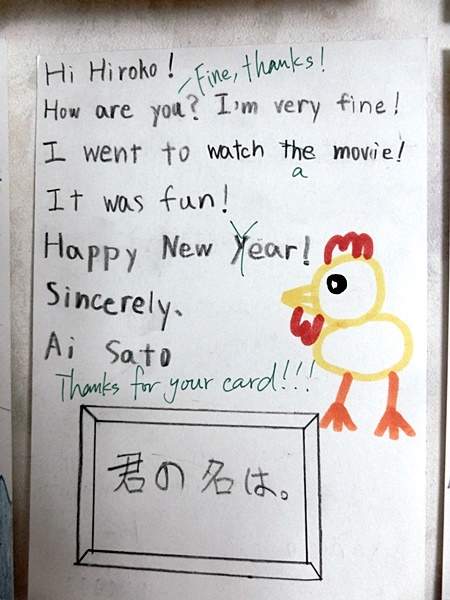 Hi Hiroko!
Fine, thanks!
How are you? I'm very fine!
I went to watch the movie!
a
It was fun!
Happy New Year!
Sincerely、
Ai Sato
Thanks for your card!!!
君の名は。